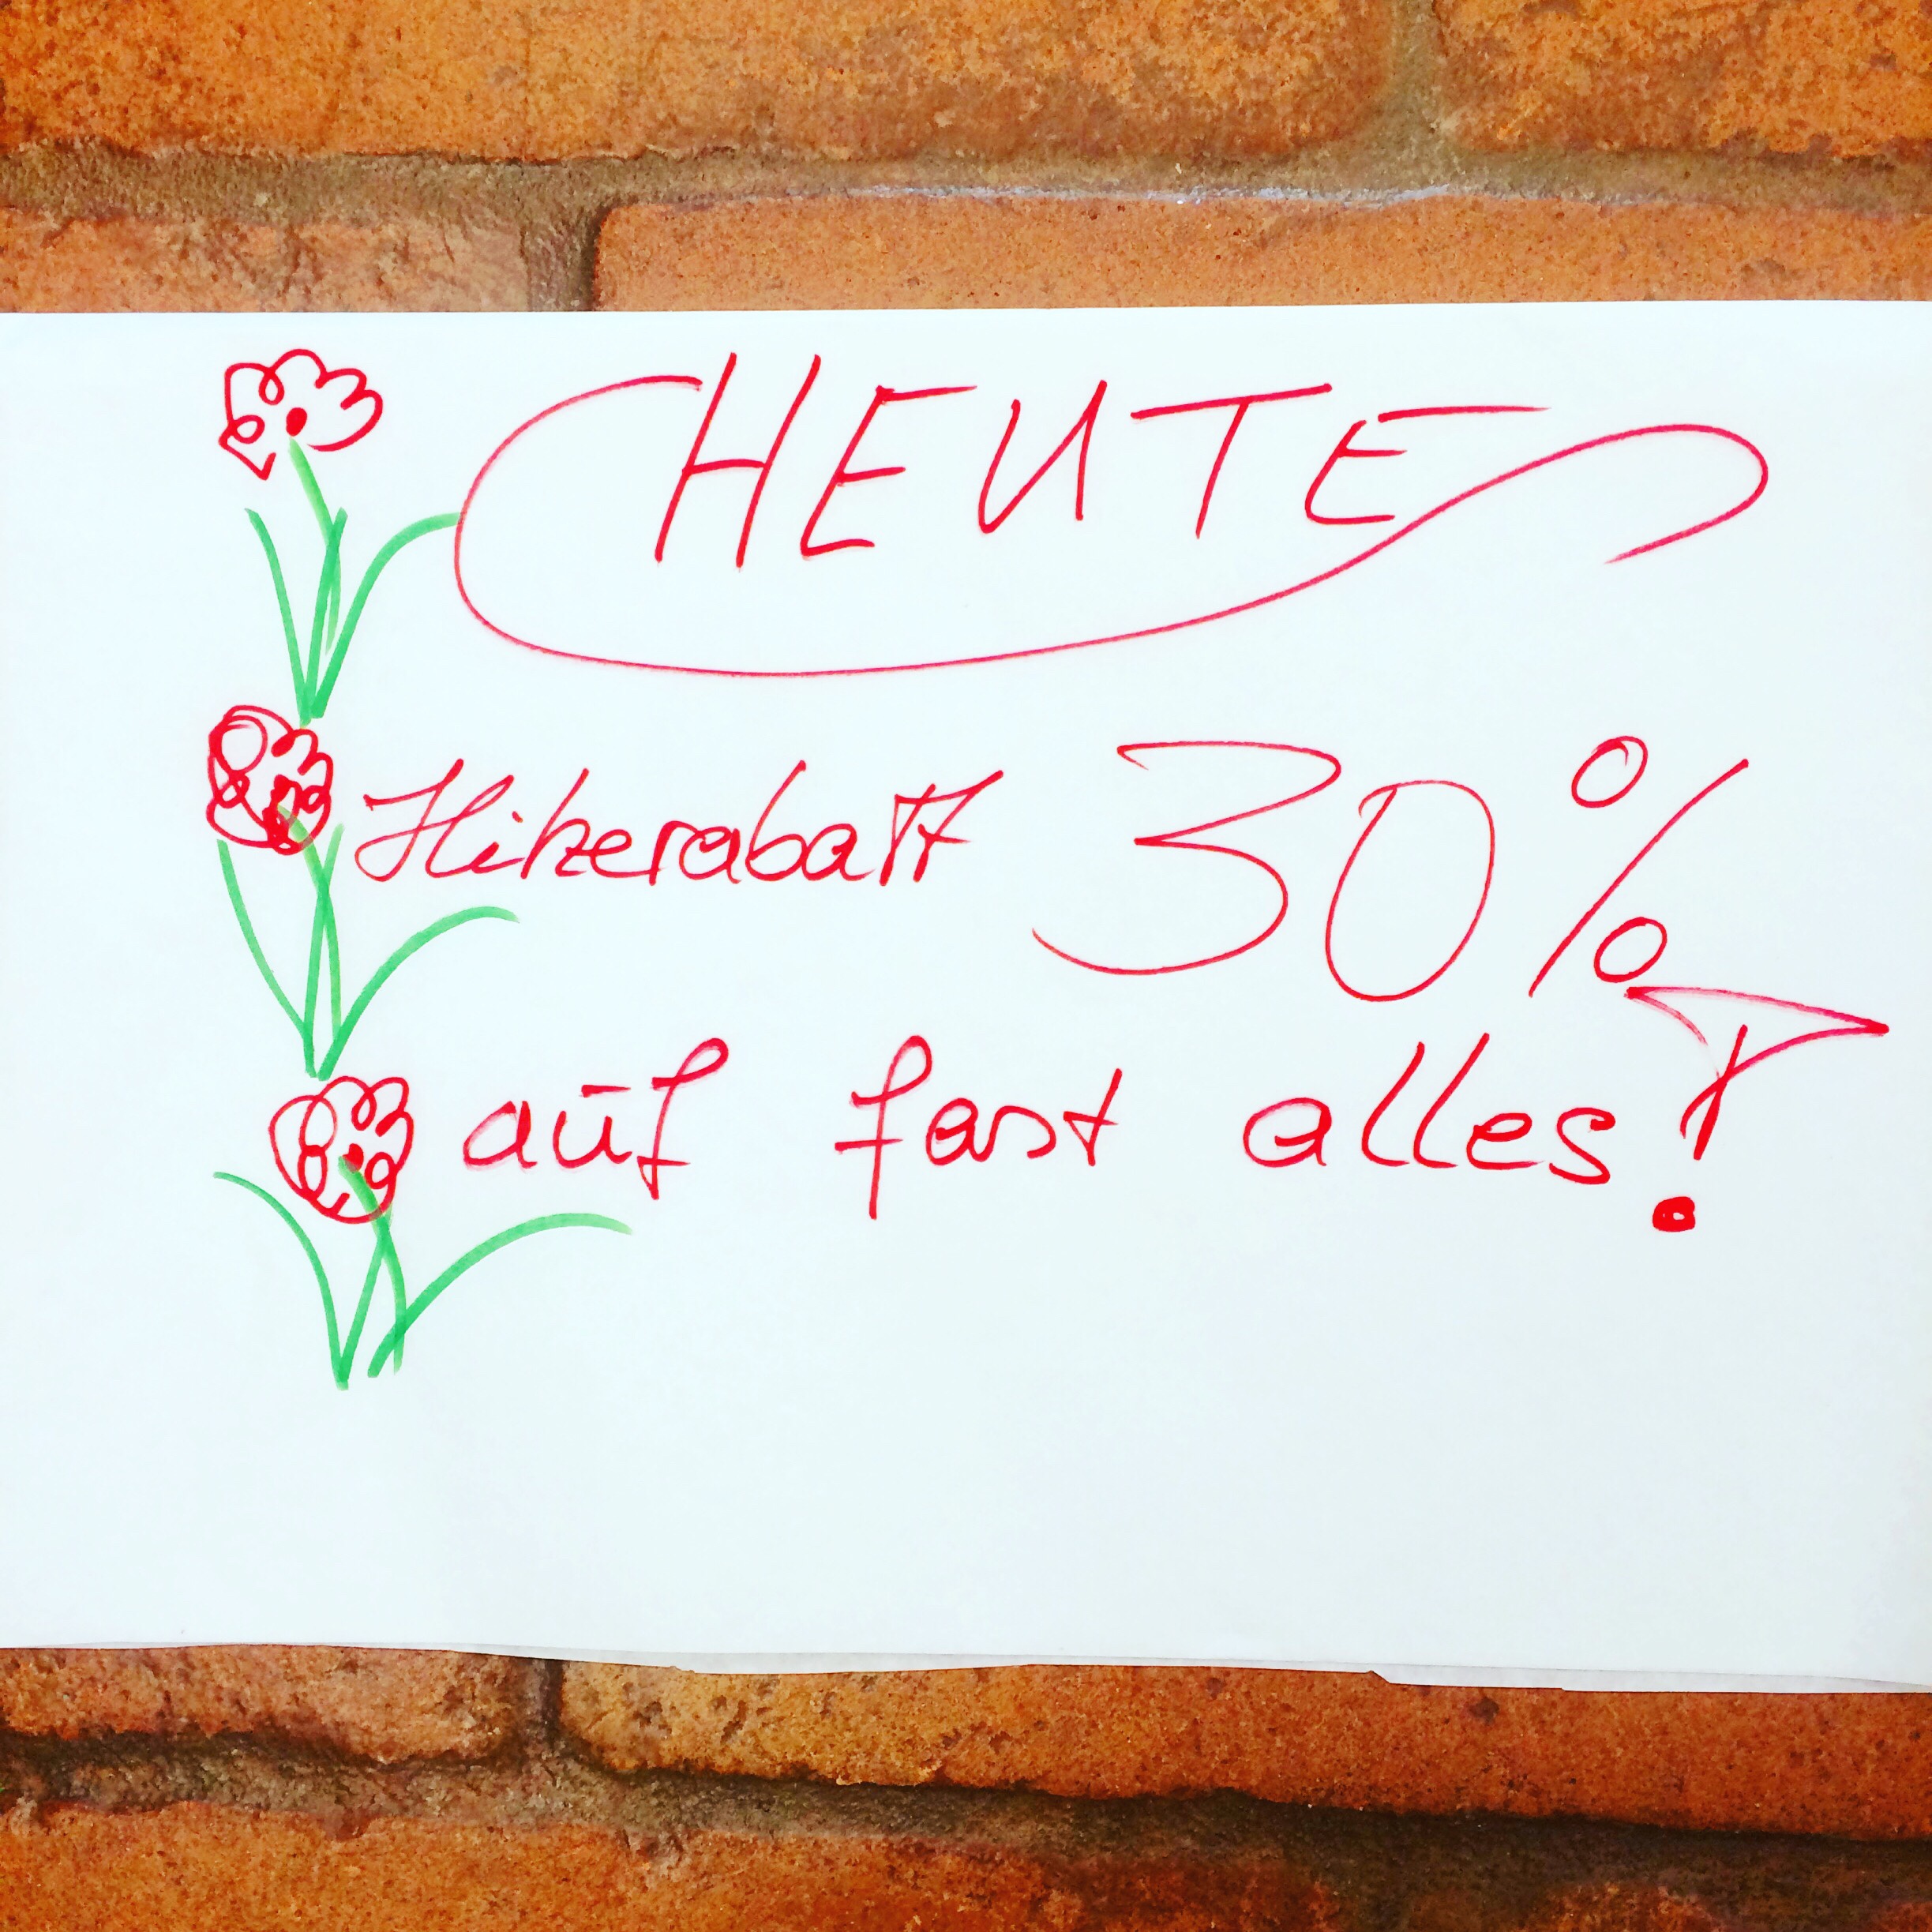 HEUTE
Hitzerabatt 30%
auf fast alles!